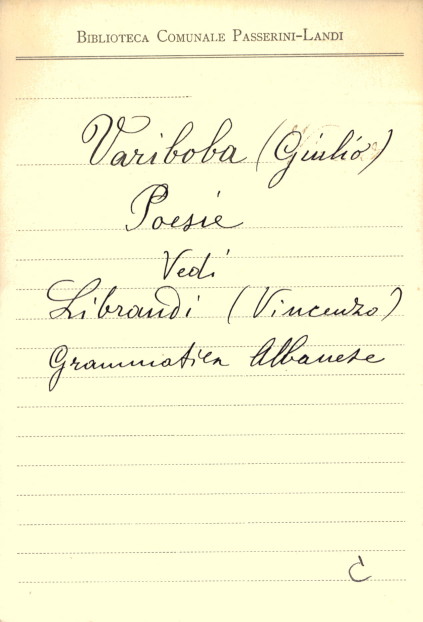 Biblioteca Comunale Passerini-Landi
Variboba (Giulio)
Poesie
Vedi
Librandi (Vincenzo)
Grammatica Albanese
C